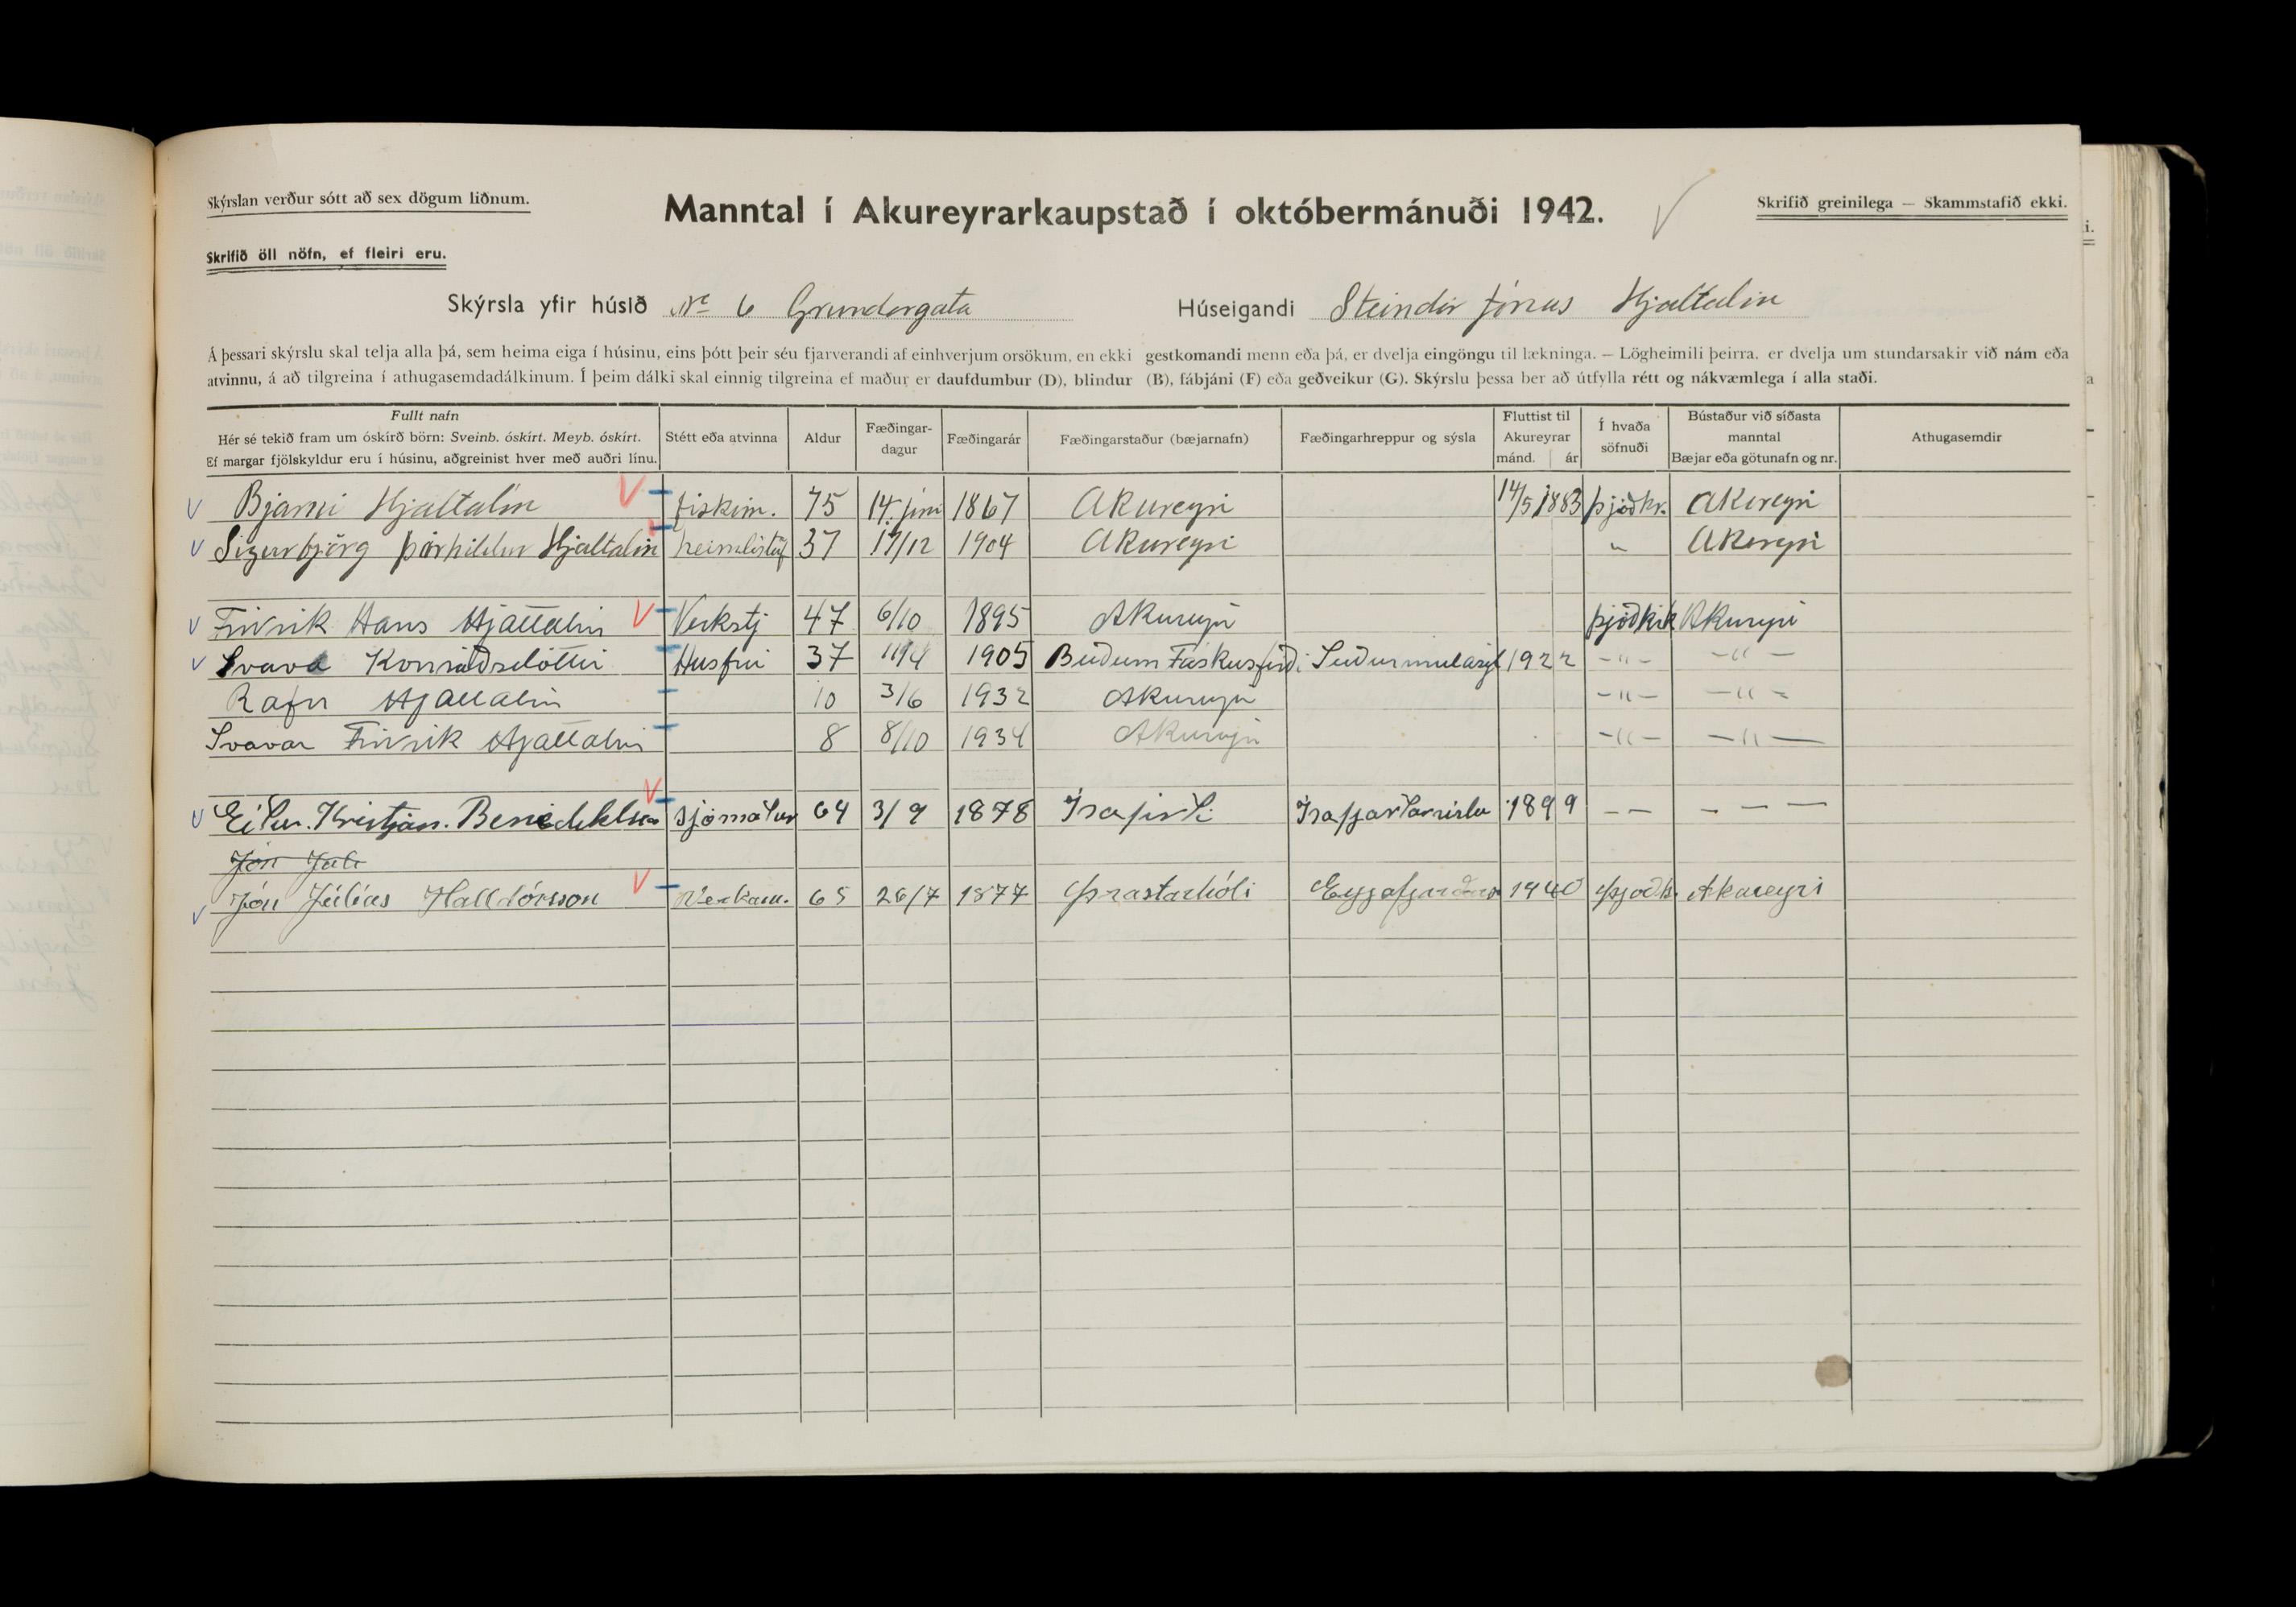 Skýrslan verður sótt að sex dögum liðnum.
Manntal í Akureyrarkaupstað í októbermánuði 1942.
Skrifið greinilega — Skammstafið ekki.
Skrifið öll nöfn, ef fleiri eru.
Skýrsla yfir húsið No 6 Grundargata Húseigandi Steindór Jónas Hjaltalín
Á þessari skýrslu skal telja alla þá, sem heima eiga í húsinu, eins þótt þeir séu fjarverandi af einhverjum orsökum, en ekki gestkomandi menn eða þá, er dvelja eingöngu til lækninga. — Lögheimili þeirra, er dvelja um stundarsakir við nám eða
atvinnu, á að tilgreina í athugasemdadálkinum. Í þeim dálki skal einnig tilgreina ef maður er daufdumbur (D), blindur (B), fábjáni (F) eða geðveikur (G). Skýrslu þessa ber að útfylla rétt og nákvæmlega í alla staði.
Fullt nafn
Hér sé tekið fram um óskírð börn: Sveinb. óskírt. Meyb. óskírt.
Ef margar fjölskyldur eru í húsinu, aðgreinist hver með auðri línu.
Stétt eða atvinna
Aldur
Fæðingar-
dagur
Fæðingarár
Fæðingarstaður (bæjarnafn)
Fæðingarhreppur og sýsla
Fluttist til
Akureyrar
mánd. ár
Í hvaða
söfnuði
Bústaður við síðasta
manntal
Bæjar eða götunafn og nr.
Athugasemdir
V Bjarni Hjaltalín V fiskim. 75 14. júní 1867 Akureyri 14/5 1883 þjóðkr. Akureyri
V Sigurbjörg Þórhildur Hjaltalín 37 1904 Akureyri " Akureyri
V Friðrik Hans Hjaltalín V Verkstj 47 6/10 1895 Akureyri þjóðkirk Akureyri
V Svava Konráðsdóttir Húsfrú 37 11/4 1905 Búðum Fáskrúsfirði Suðurmúlasýsl 1922 -"- -"-
Rafn Hjaltalín 10 3/6 1932 Akureyri -"- -"-
Svavar Friðrik Hjaltalín 8 8/10 1934 Akureyri -"- -"-
V Kristján. Benediktsson V sjómaður 64 3/9 1878 Ísafirði Ísafjarðarsíslu 1899 — — — — —
Jón Júlí
V Jón Júlíus Halldórsson V Verkam. 65 26/7 1877 Þrastarhóli Eyjafjarðar 1940 Þjóðk. Akureyri